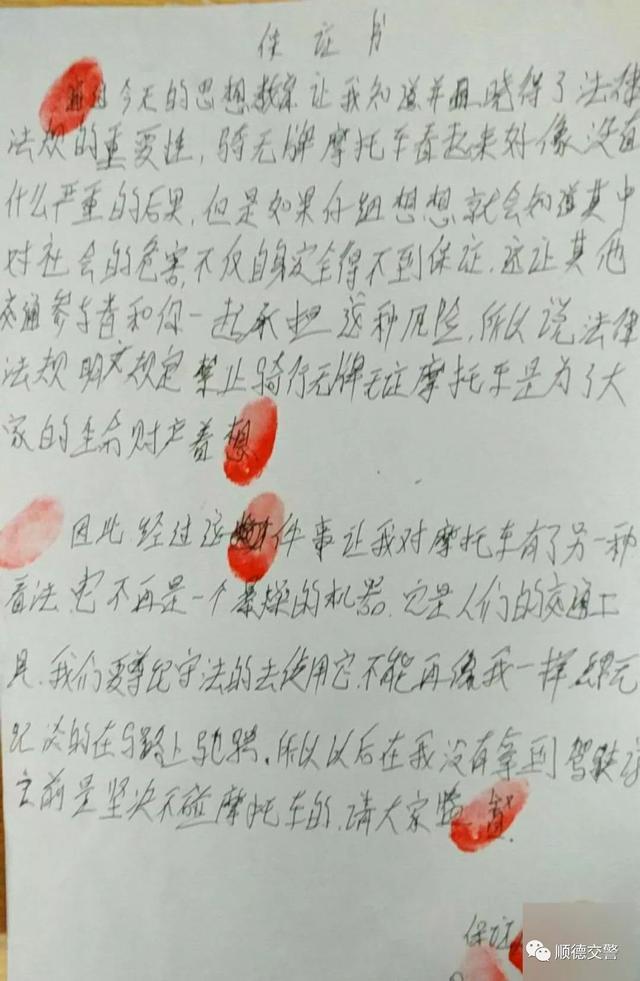 保证书
通过今天的思想教育让我知道并且晓得了法律
法规的重要性，骑无牌摩托车看起来好像没有
什么严重的后果，但是如果仔细想想就会知道其中
对社会的危害，不仅自身安全得不到保证，还让其他
交通参与者和你一起承担这种风险，所以说法律
法规明文规定禁止骑行无牌无证摩托车是为了大
家的生命财产着想
因此，经过这件事让我对摩托车有了另一种
看法，它不再是一个暴燥的机器，它是人们的交通工
具，我们要尊纪守法的去使用它，不能再像我一样，无
纪 的在马路上驰骋，所以以后在我没有拿到驾驶证
之前是坚决不碰摩托车的，请大家监督
保证
顺德交警